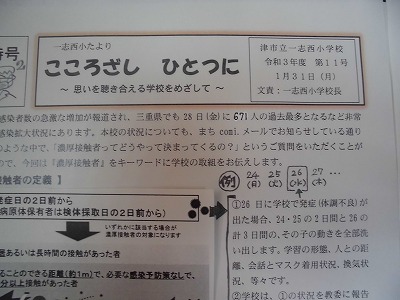 号
一志西小たより
こころざし ひとつに
～ 思いを聴き合える学校をめざして ～
津市立一志西小学校
令和3年度 第11号
1月31日(月)
文責：一志西小学校長
感染者数の急激な増加が報道され、三重県でも28日(金)に671人の過去最多となるなど非常
感染拡大状況にあります。本校の状況についても、まちcomiメールでお知らせしている通り
のような中で、「濃厚接触者ってどうやって決まってくるの？」というご質問をいただくことが
ので、今回は『濃厚接触者』をキーワードに学校の取組をお伝えします。
接触者の定義】
例
24 25 26 27 …
(月) (火) (水) (木)
発症日の2日前から
病原体保有者は検体採取日の2日前から)
いずれかに該当する場合が
濃厚接触者の対象になります
居あるいは長時間の接触があった者
ることのできる距離(約1m)で、必要な感染予防策なしで、
分以上接触があった者
①26日に学校で発症(体調不良)が
出た場合、24・25の2日間と26の
計3日間の、その子の動きを全部洗
い出します。学習の形態、人との距
離、会話とマスク着用状況、換気状
況、等々です。
②学校は、①の状況を教委に報告